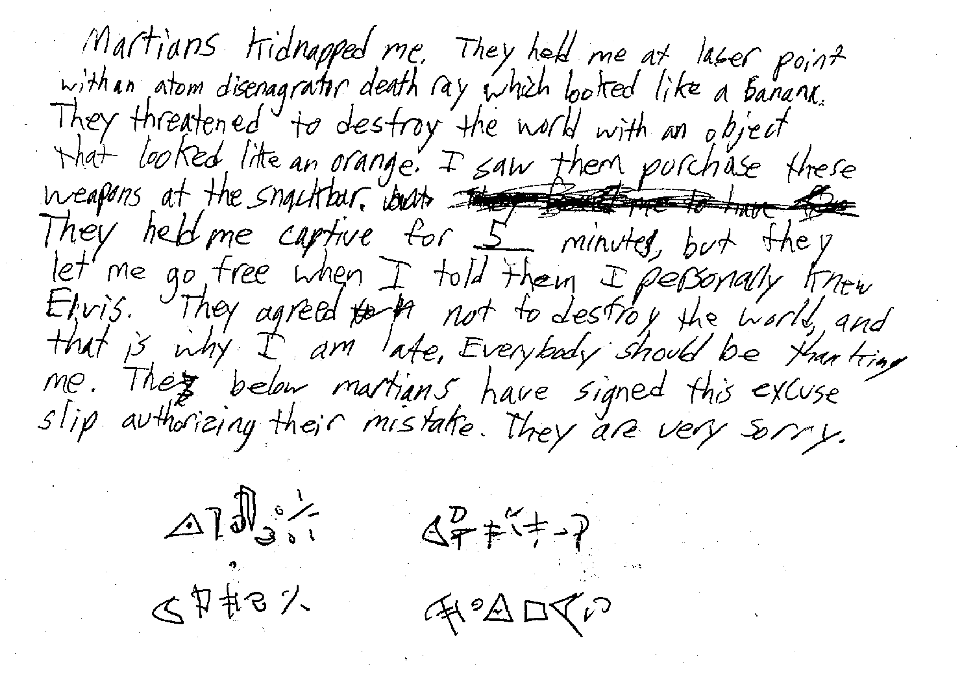 Martians kidnapped me. They held me at laser point
with an atom disenagrator death ray which looked like a Banana.
They threatened to destroy the world with an object
that looked like an orange. I saw them purchase these
weapons at the snackbar.
They held me captive for 5 minutes, but they
let me go free when I told them I personally knew
Elvis. They agreed not to destroy the world, and
that is why I am late. Everybody should be thanking
me. The below martians have signed this excuse
slip authorizing their mistake. They are very sorry.